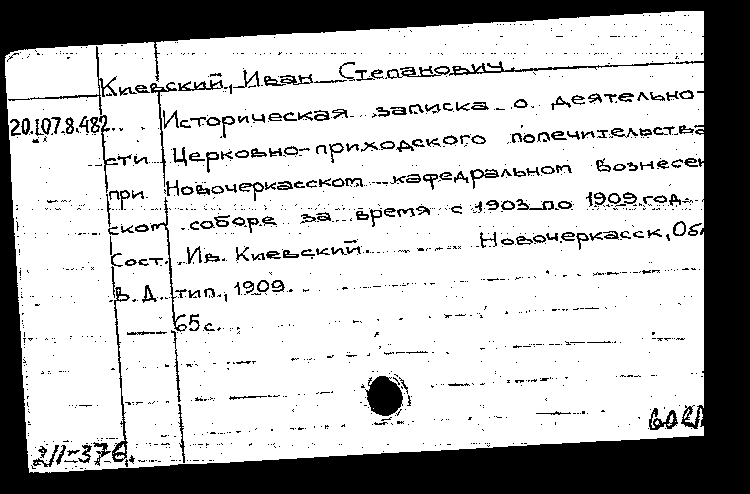 Киевский, Иван Степанович.
20.107.8.482. Историческая записка о деятельно-
сти Церковно-приходского попечительства
при Новочеркасском кафедральном Вознесен
ском соборе за время с 1903 по 1909 год.
Сост. Ив. Киевский. Новочеркасск, Обл
В. Д. тип., 1909.
65 с.
2/II-37г.